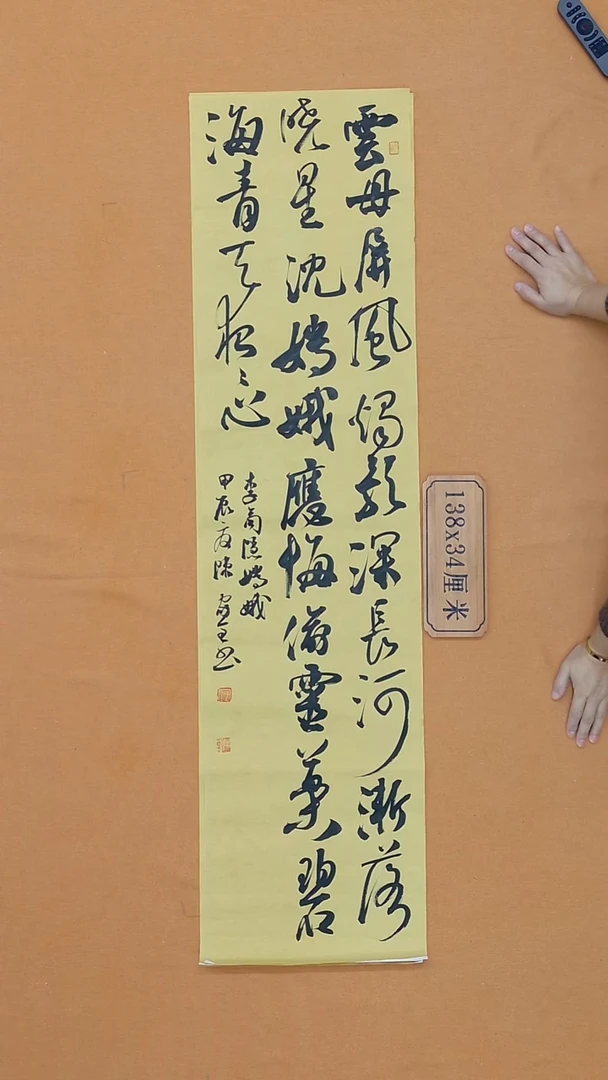 雲母屏風燭影深長河漸落
曉星沈嫦娥應悔偷靈藥碧
海青天夜〻心
李商隱嫦娥
甲辰 陳 书
138x34厘米